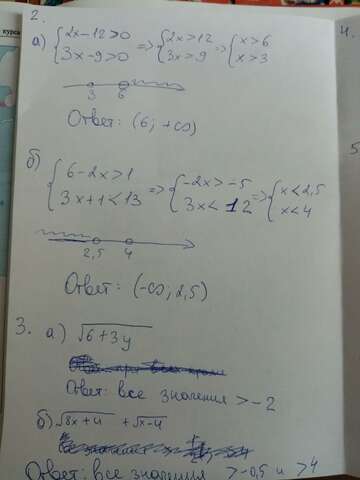 курса
2.
а) {2x-12>0 => {2x>12 => {x>6
{3x-9>0 {3x>9 {x>3
3 6
Ответ: (6; +∞)
б) {6-2x>1 => {-2x>-5 => {x<2,5
{3x+1<13 {3x<12 {x<4
2,5 4
Ответ: (-∞; 2,5)
3. а) √6+3y
Ответ: все значения >-2
б) √8x+4 + √x-4
Ответ: все значения >-0,5 и >4
4.
5